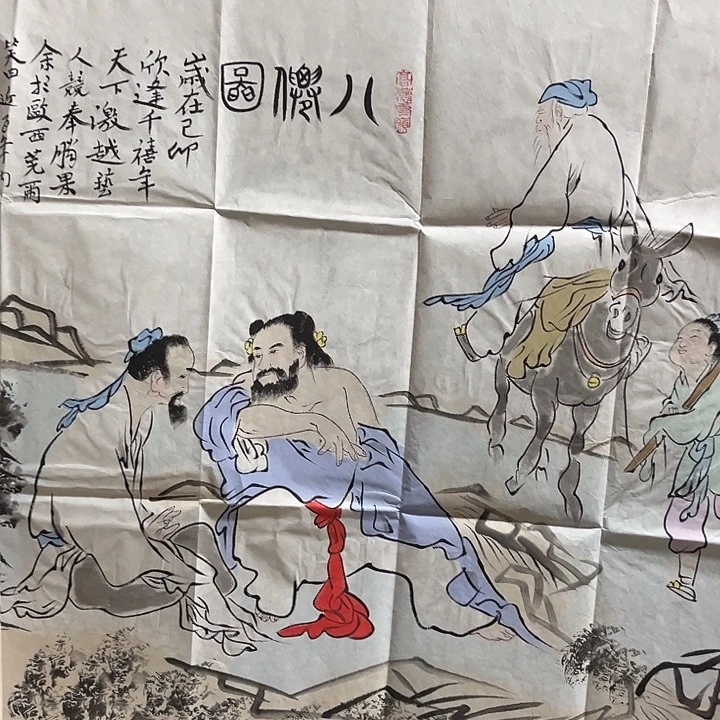 八僊圖
歲在己卯
欣逢千禧年
天下激越藝
人競奉果
余於歐西莞爾
笑曰近